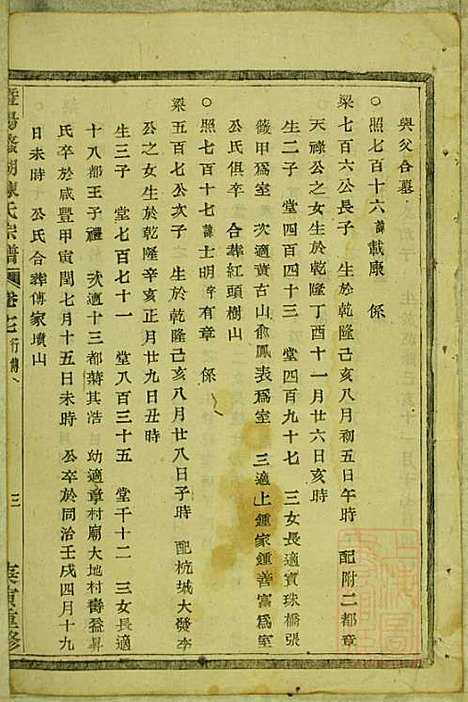 與父合墓
○照七百十六 諱載康 係
梁七百六公長子 生於乾隆己亥八月初五日午時 配附二都章
天祿公之女生於乾隆丁酉十一月廿六日亥時
生二子 堂四百四十三 堂四百九十七 三女長適寶珠橋張
籤甲爲室 次適黃古山俞鳳表爲室 三適上鍾家鍾善富爲室
公氏俱卒 合葬紅頭樹山
○照七百十七 諱士明 字有章 係
梁五百七公次子 生於乾隆己亥八月廿八日子時 配杭城大發李
公之女生於乾隆辛亥正月廿九日丑時
生三子 堂七百七十一 堂八百三十五 堂千十二 三女長適
十八都王子禮 次適十三都蔡其浩 幼適章村廟大地村壽益昇
氏卒於咸豐甲寅閏七月十五日未時 公卒於同治壬戌四月十九
日未時 公氏合葬傅家墳山
暨陽 湖陳氏宗譜 卷七 行傳 三 寅重修